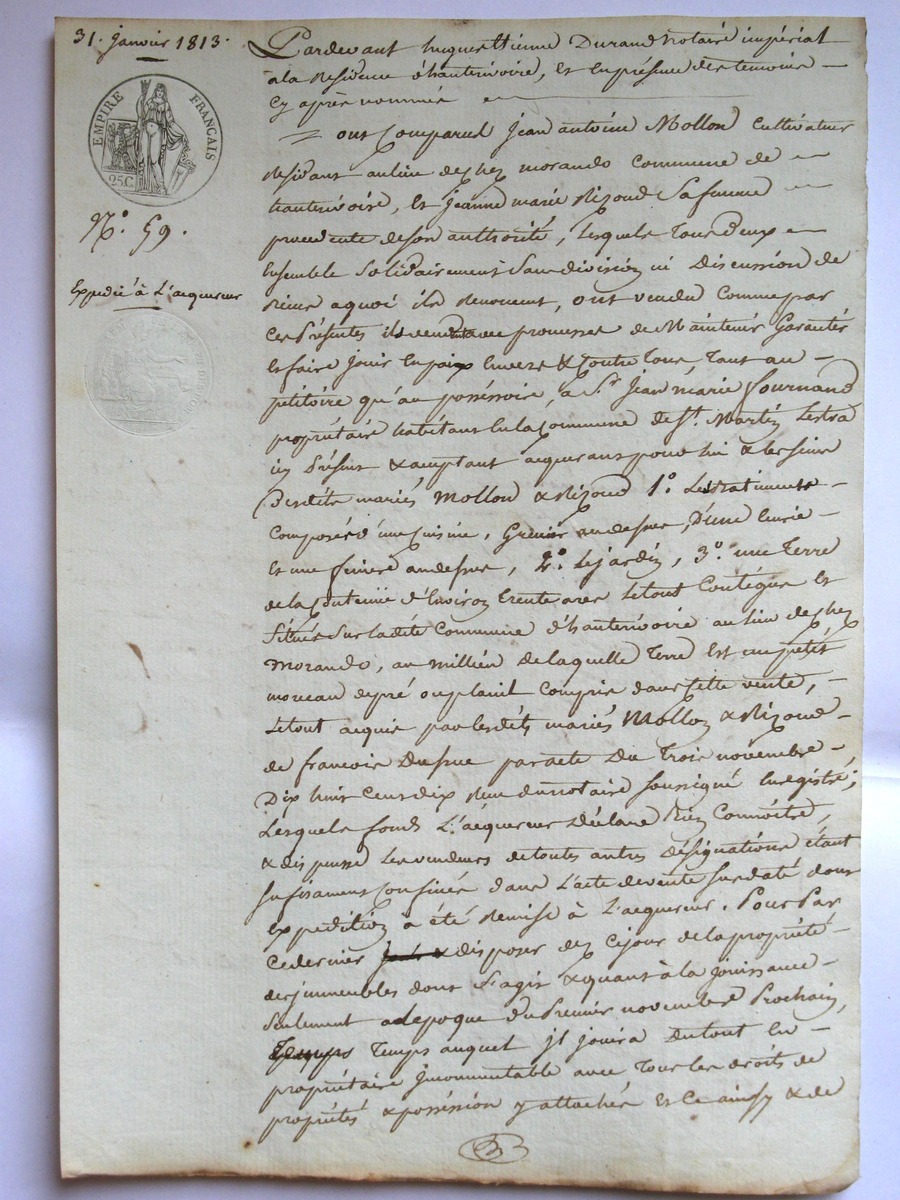 31. janvier 1813.
EMPIRE FRANÇAIS
25.C.
N.o 59.
Expedié à L'acquereur
Pardevant Etienne Durand Notaire impérial
a la Residence d'hauterivoire, et en présence des temoins
Cy après nommés
ont Comparus Jean antoine Mollon Cultivateur
Residant au lieu de chez morando Commune de
hauterivoire, et Jeanne marie Rizoud Sa femme
procedente de son authorité, Lesquels Tous Deux
Ensemble Solidairement Sans division ni Discussion de
Biens aquoi ils Renoncent, ont vendu Comme par
Ces Présentes ils vendent avec promesse de Maintenir Garantir
et faire Jouir en paix Envers & Contre Tous, Tant au
pétitoire qu'au posséssoire, a Sr. Jean marie fournand
propriétaire habitant en la Commune de St. Martin Lestra
icy Présent & acceptant acquerant pour lui & les siens
Desdits mariés Mollon & Rizoud 1.o Les Batiments
Composés d'une Cuisine, Grenier au dessus, D'une Ecurie
et une feniere au dessus, 2.o Le jardin, 3.o une Terre
de la Contenue d'Environ trente ares Le tout Contigus et
Situés Sur la dite Commune d'hauterivoire au lieu de chez
Morando, au millieu de laquelle Terre est un petit
morceau de pré compris dans cette vente,
Le tout acquis par les dits mariés Mollon & Rizoud
de francois par acte Du Trois novembre
Dix huit Cent dix Reçu du notaire soussigné Enregistré;
Lesquels fonds L'acquereur Déclare Bien Connoitre,
& dispense Les vendeurs de toutes autres Désignations étant
sufisament Confinés dans L'acte de vente sus daté dont
Expedition a été Remise à L'acquereur. Pour Par
Ce dernier & disposer dez Ce jour de la propriété
des immeubles dont s'agit & quant à la jouissance
Seulement a l'epoque du Premier novembre Prochain,
Temps auquel il jouira du tout En
propriétaire jncommutable avec Tous les droits de
propriétés & posséssion y attachés Et Ce ainssy & de